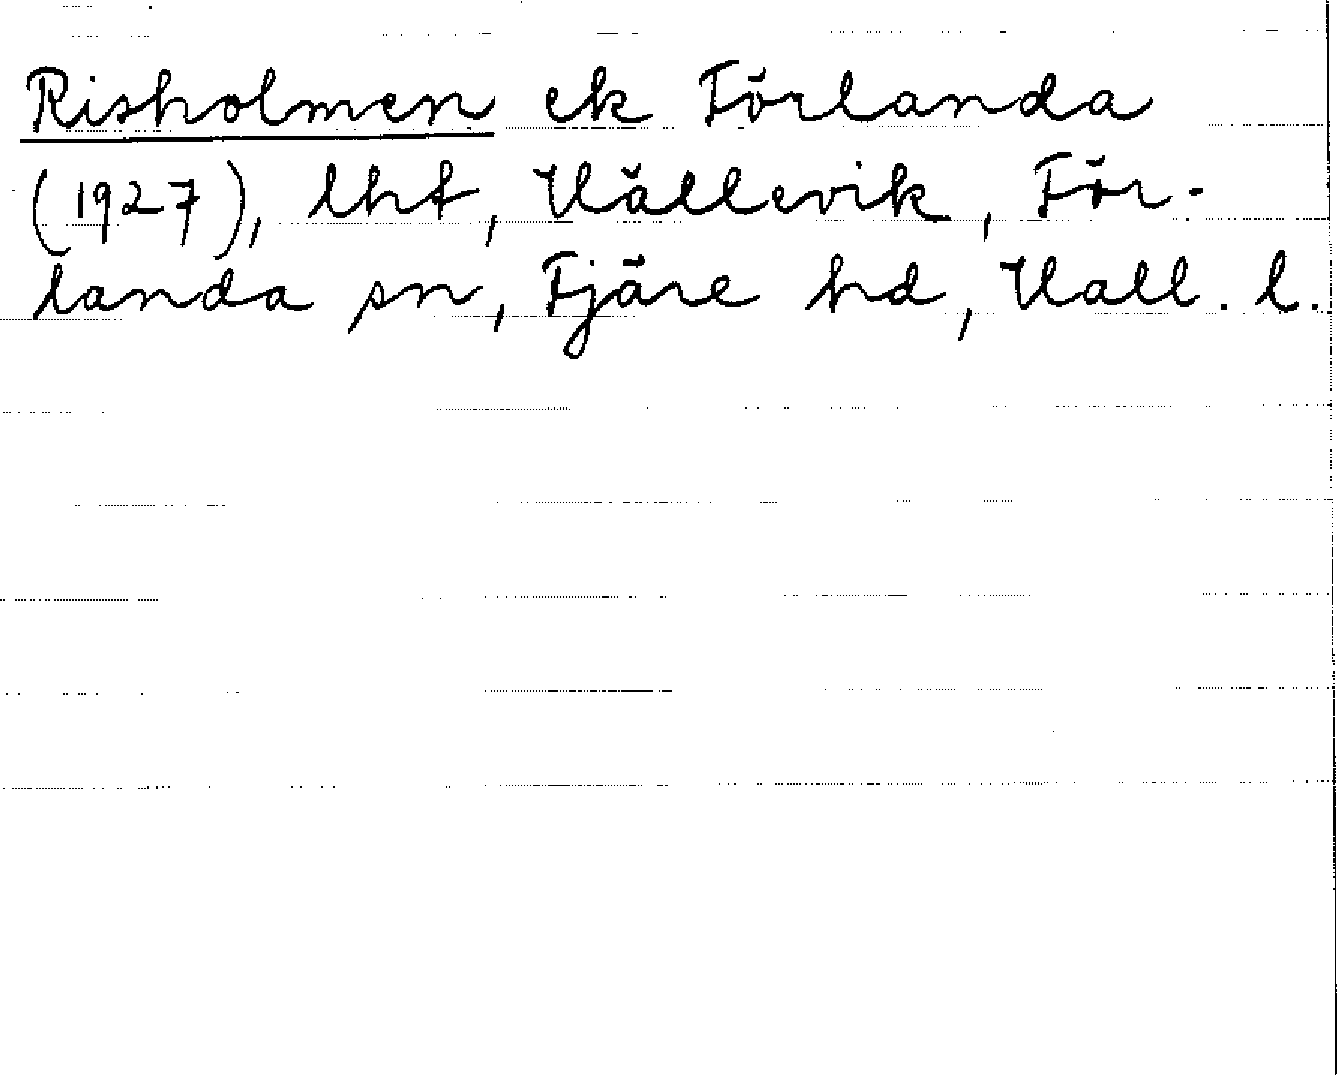 Risholmen ek Förlanda
(1927), lht, Hällevik, För-
landa sn, Fjäre hd, Hall. l.